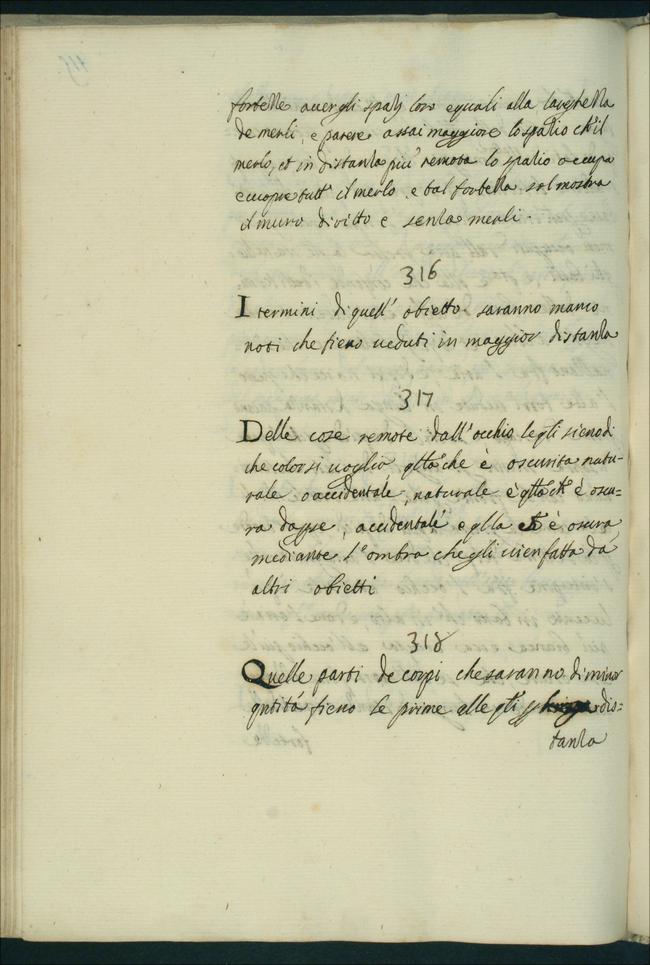 fortezze auer gli spatij loro equali alla larghezza
de merli, e parere assai maggiore lo spatio ch'il
merlo, et in distanza piu' remota lo spatio occupa
e cuopre tutt' il merlo e tal fortezza sol mostra
il muro diritto e senza merli.
316
I termini di quell' obietto saranno manco
noti che fieno ueduti in maggior distanza
317
Delle cose remote dall'occhio le gli sieno di
che color si uoglio qlla che è oscurita natu-
rale o accidentale, naturale è qlla ch' è oscu=
ra da sse, accidentale e qlla ch è oscura
mediante l'ombra che gli uien fatta da
altri obietti
318
Quelle parti de corpi che saranno di minor
qntità fieno le prime alle qli dis=
tanza